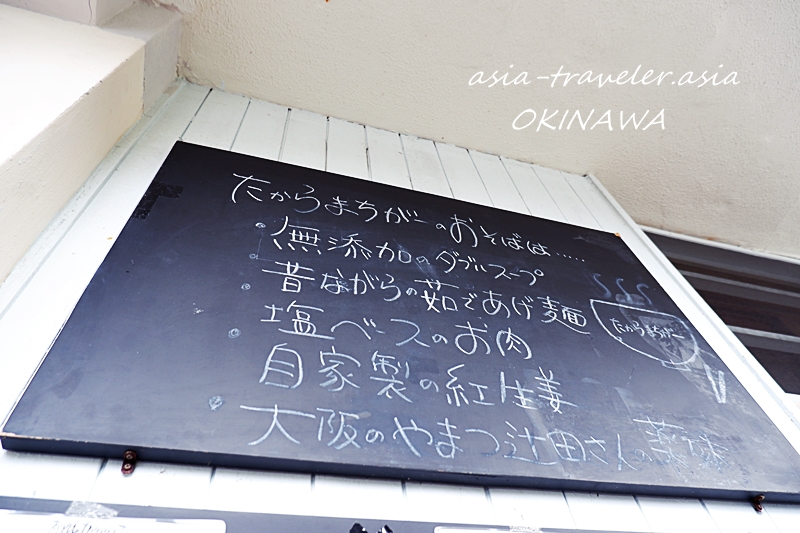 asia-traveler.asia
OKINAWA
たからまちがーのおそばは……
・無添加のダブルスープ
・昔ながらの茹であげ麺
・塩ベースのお肉
自家製の紅生姜
・大阪のやまつ辻田さんの薬味
たからまちがー